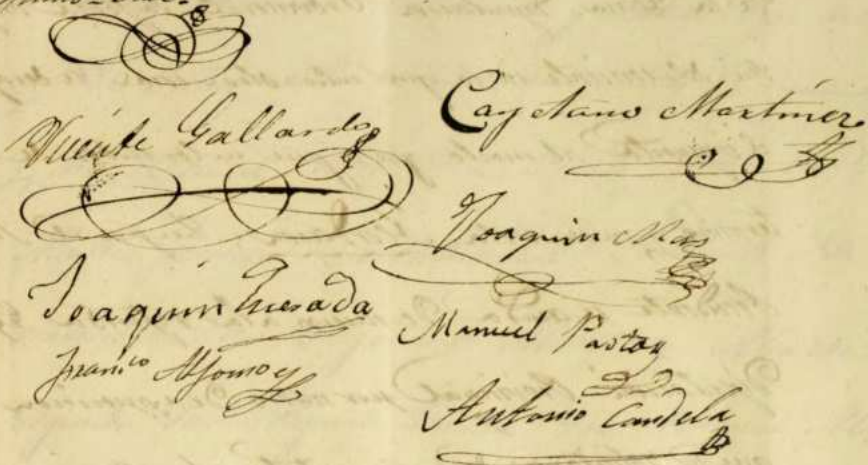 Vicente Gallardo
Joaquin Quesada
Franco Alfonso
Cayetano Martinez
Joaquin Mas
Manuel Pastor
Antonio Candela